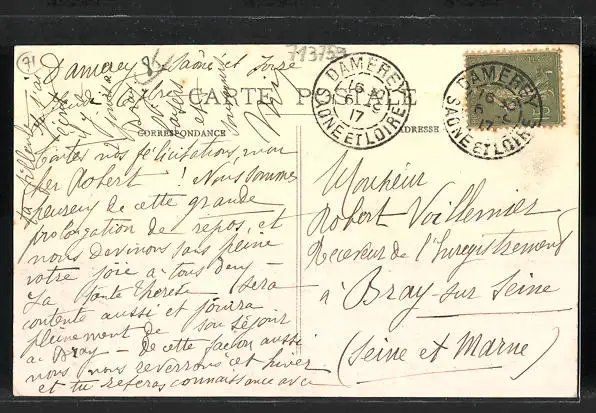 71
713759
Damerey Saône et Loire
CARTE POSTALE
CORRESPONDANCE
ADRESSE
DAMEREY
16
17
SAONE ET LOIRE
DAMEREY
16
17
SAONE ET LOIRE
Toutes nos félicitations, mon
cher Robert ! Nous sommes
heureux de cette grande
prolongation de repos, et
nous devinons sans peine
votre joie à tous deux -
La Tante Thérèse sera
contente aussi et jouira
pleinement de son séjour
à Bray - de cette façon aussi
nous nous reverrons cet hiver
et tu referas connaissance avec
Monsieur
Robert Voillemier
Receveur de l'Enregistrement
à Bray-sur Seine
(Seine et Marne)